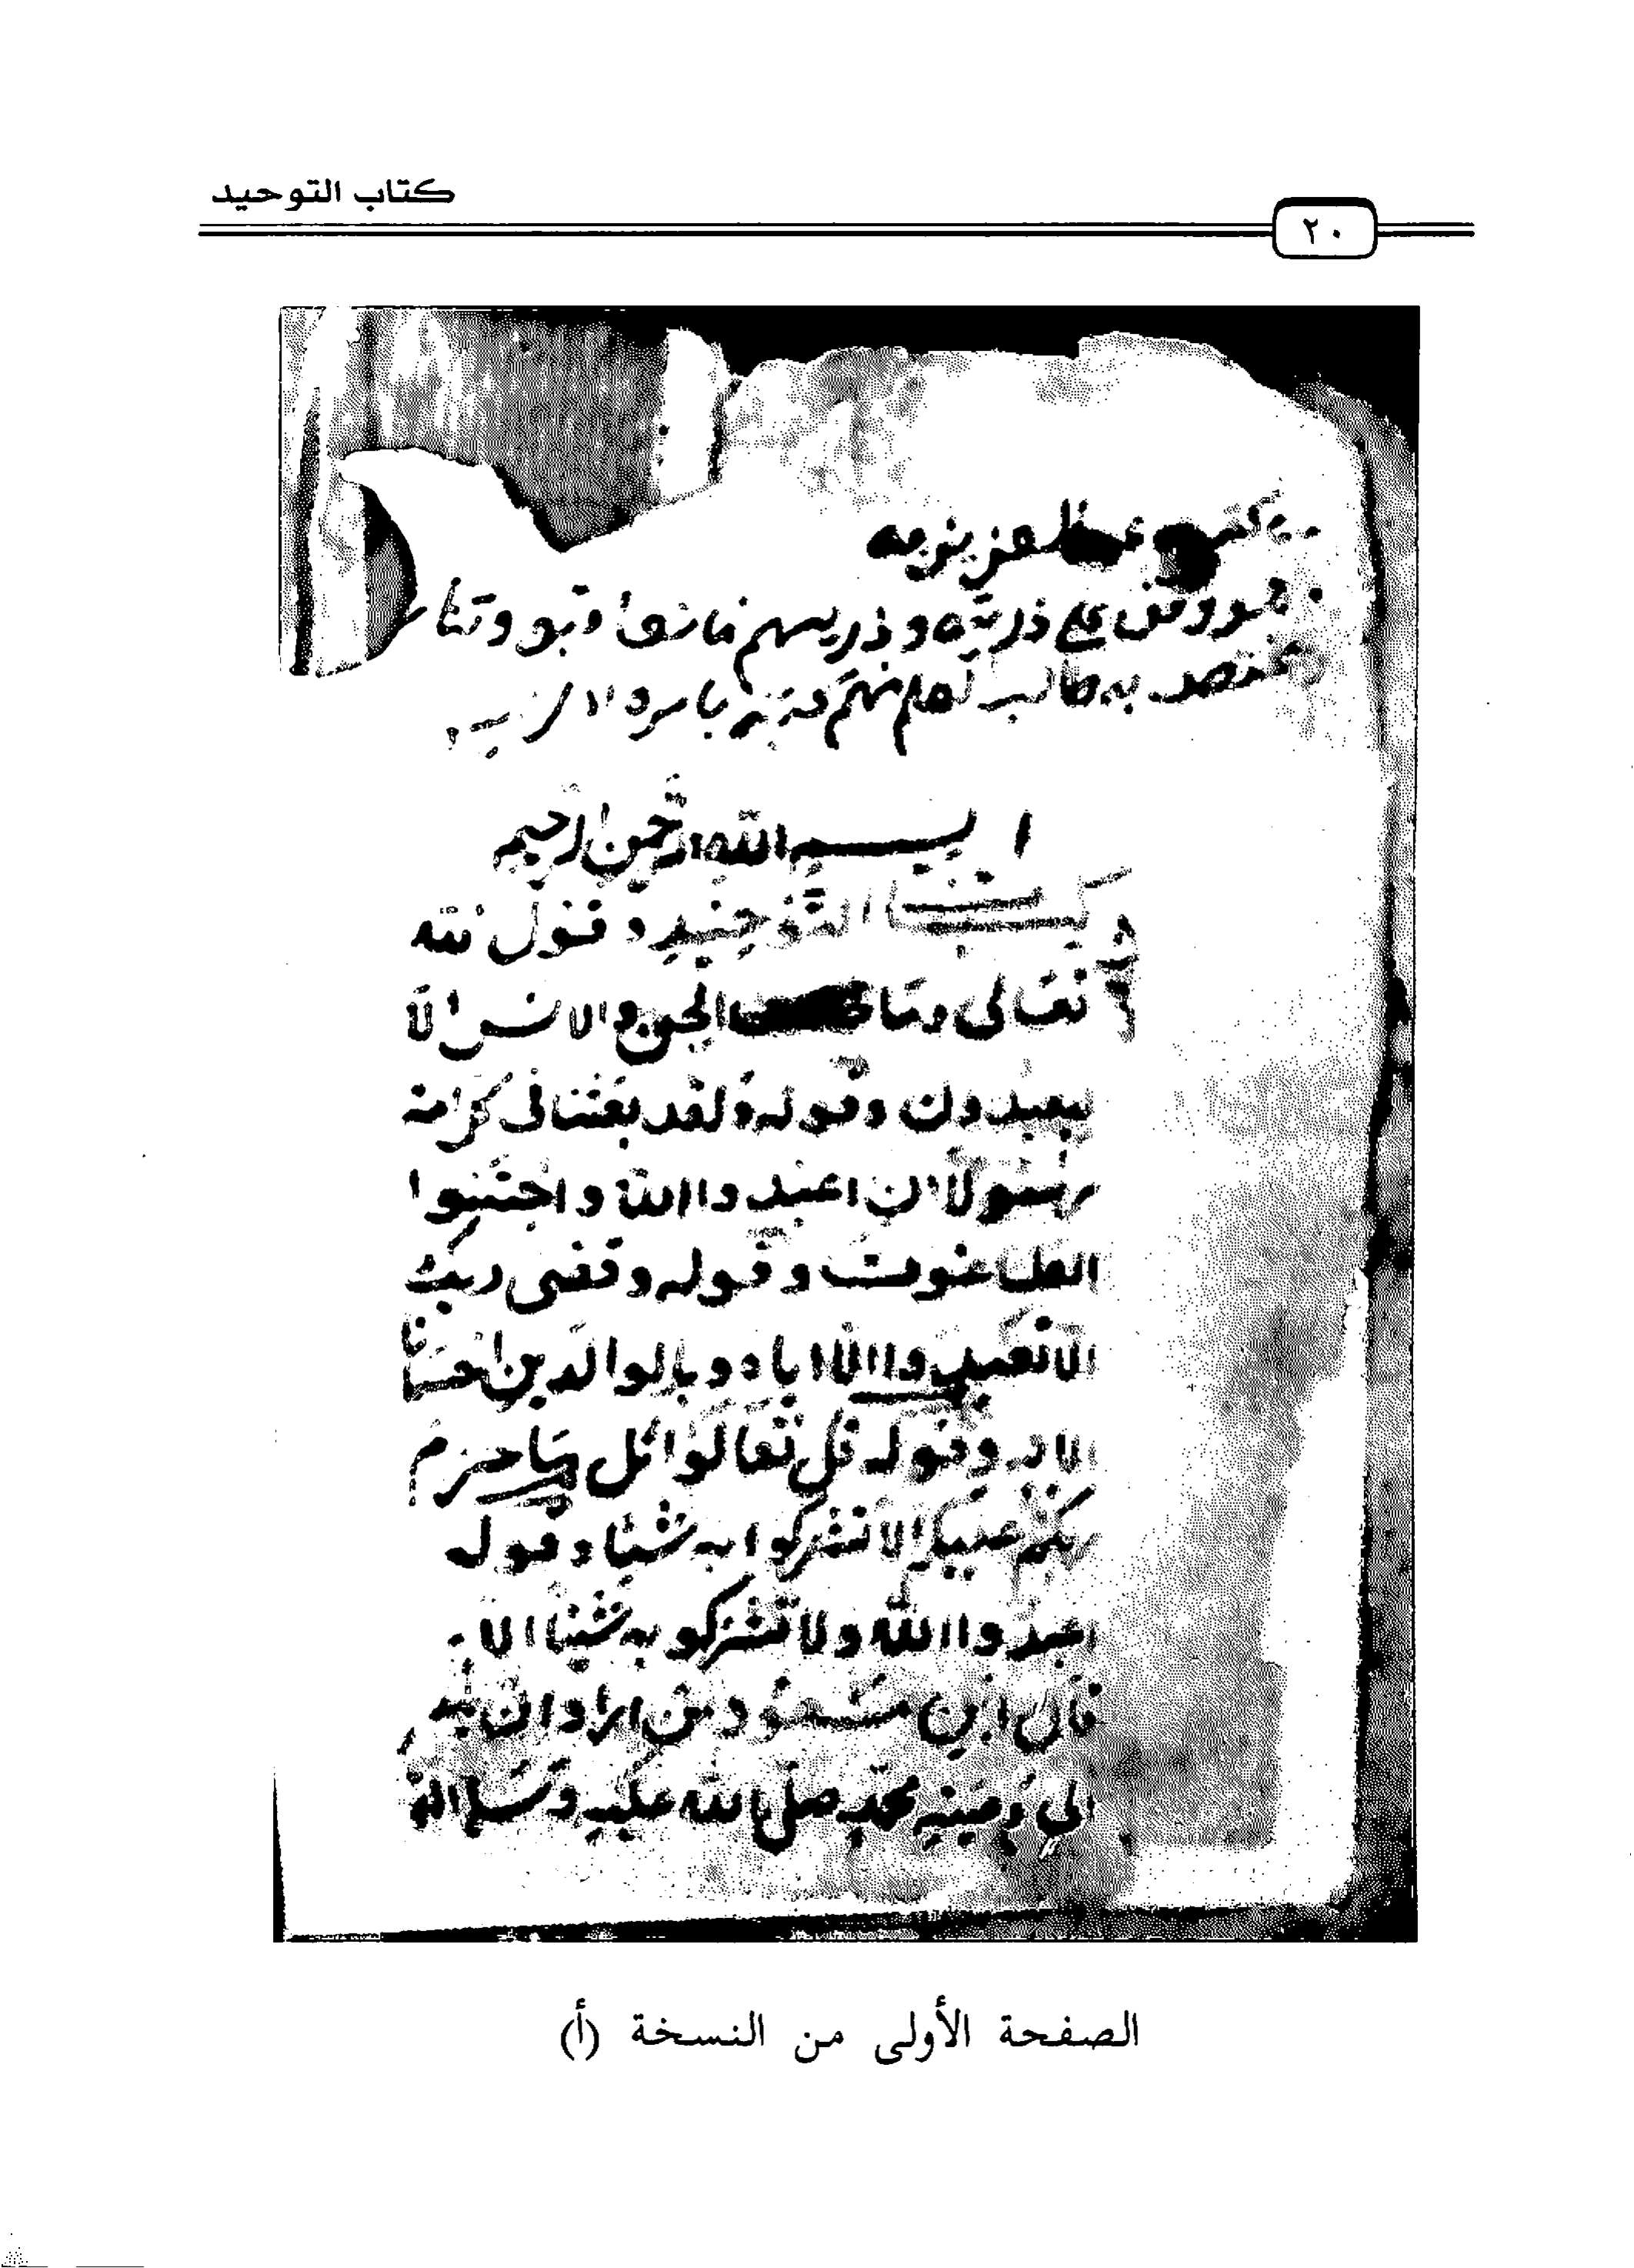 كتاب التوحيد
٢٠
وقف على ذريته وذريتهم فان
به طالب العلم منهم
بسم الله الرحمن الرحيم
كتاب التوحيد وقول الله
تعالى وما الجن والانس الا
ليعبدون وقوله ولقد بعثنا في كل امة
رسولا ان اعبدوا الله واجتنبوا
الطاغوت وقوله وقضى ربك
الا تعبدوا الا اياه وبالوالدين احسانا
الايه وقوله قل تعالوا اتل ما حرم
ربكم عليكم الا تشركوا به شيئا وقوله
اعبدوا الله ولا تشركو به شيئا الا
قال ابن مسعود من اراد ان
الى وصية محمد صلى الله عليه وسلم
الصفحة الأولى من النسخة (أ)